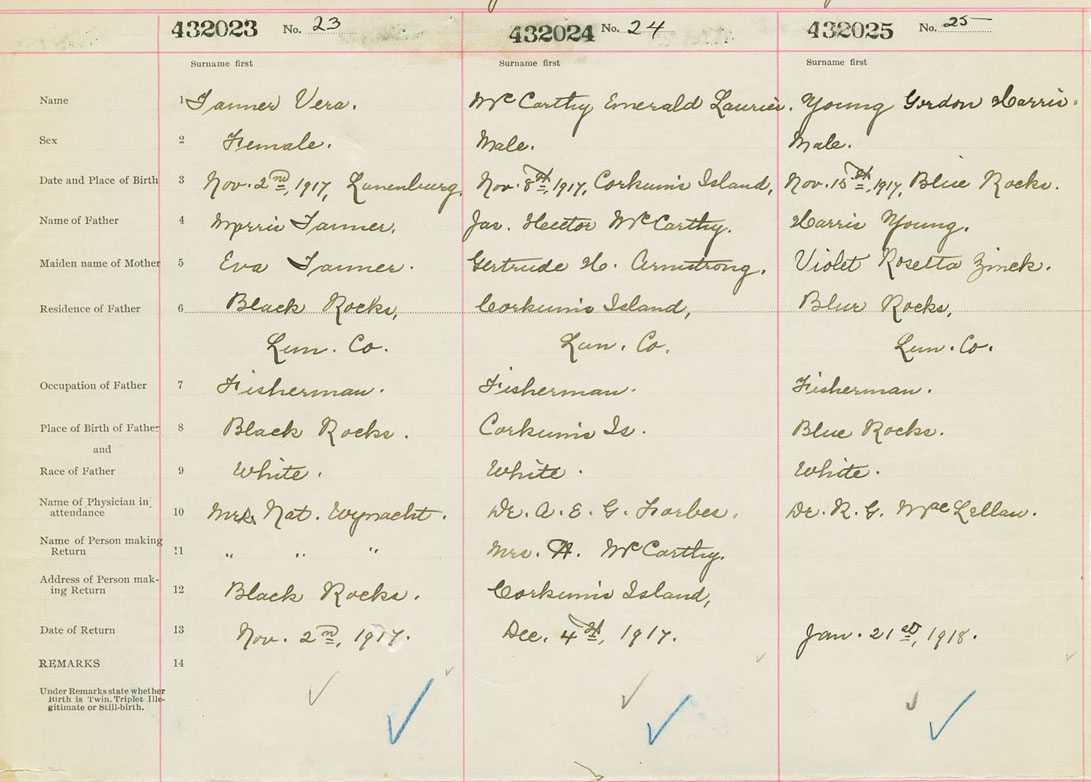 432023 No. 23 432024 No. 24 432025 No. 25
Surname first Surname first Surname first
Name 1 Tanner Vera. McCarthy Emerald Laurier. Young Gordon Harris.
Sex 2 Female. Male. Male.
Date and Place of Birth 3 Nov. 2nd, 1917, Lunenburg. Nov. 8th, 1917, Corkum's Island, Nov. 15th, 1917, Blue Rocks.
Name of Father 4 Morris Tanner. Jas. Hector McCarthy. Harris Young.
Maiden name of Mother 5 Eva Tanner. Gertrude H. Armstrong. Violet Rosetta Zinck.
Residence of Father 6 Black Rocks, Corkum's Island, Blue Rocks,
Lun. Co. Lun. Co. Lun. Co.
Occupation of Father 7 Fisherman. Fisherman. Fisherman.
Place of Birth of Father 8 Black Rocks. Corkum's Is. Blue Rocks.
and
Race of Father 9 White. White. White.
Name of Physician in
attendance 10 Mrs. Nat. Wynacht. Dr. A. E. G. Forbes. Dr. R. G. MacLellan.
Name of Person making
Return 11 " " " Mrs. H. McCarthy.
Address of Person mak-
ing Return 12 Black Rocks. Corkum's Island,
Date of Return 13 Nov. 2nd, 1917. Dec. 4th, 1917. Jan. 21st, 1918.
REMARKS 14
Under Remarks state whether
Birth is Twin, Triplet Ille-
gitimate or Still-birth.